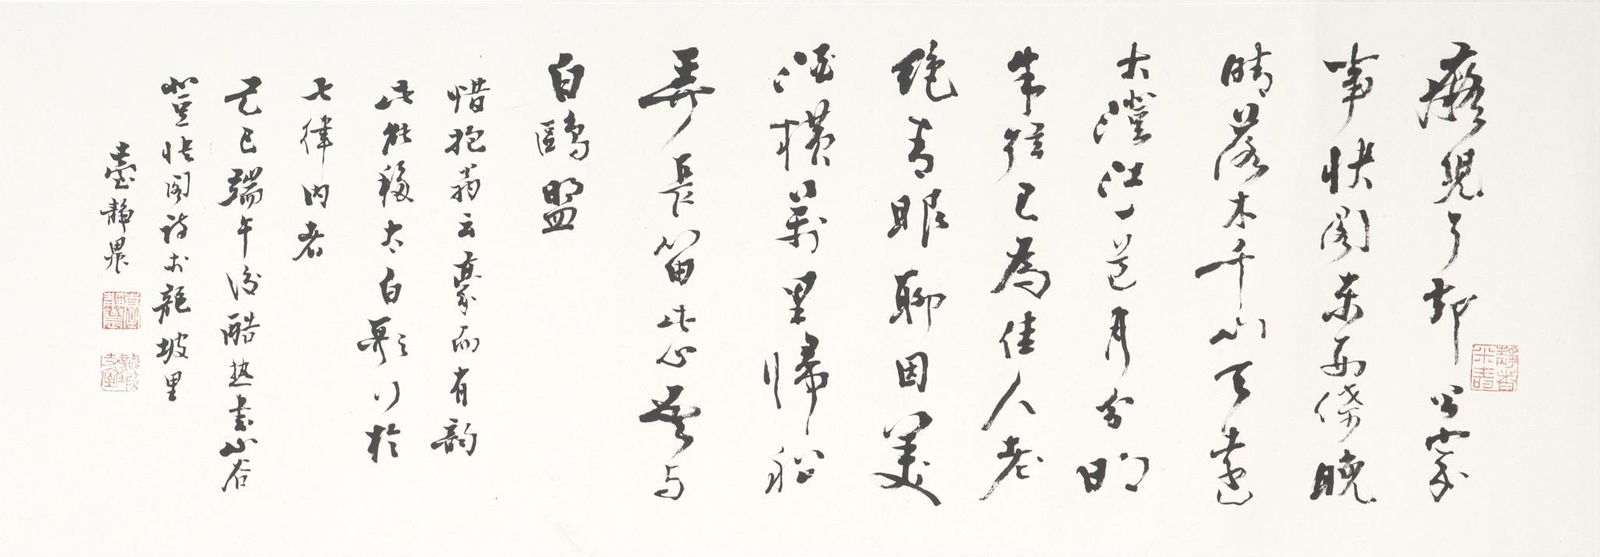 癡兒了却公家
事快閣東西倚晚
晴落木千山天遠
大澄江一道月分明
朱弦已為佳人老
絕青眼聊因美
酒橫萬里歸船
弄長笛此心吾与
白鷗盟
惜抱翁云豪而有韵
此能移太白歌行於
七律內者
己巳端午後酷熱書山谷
登快閣詩於龍坡里
臺靜農